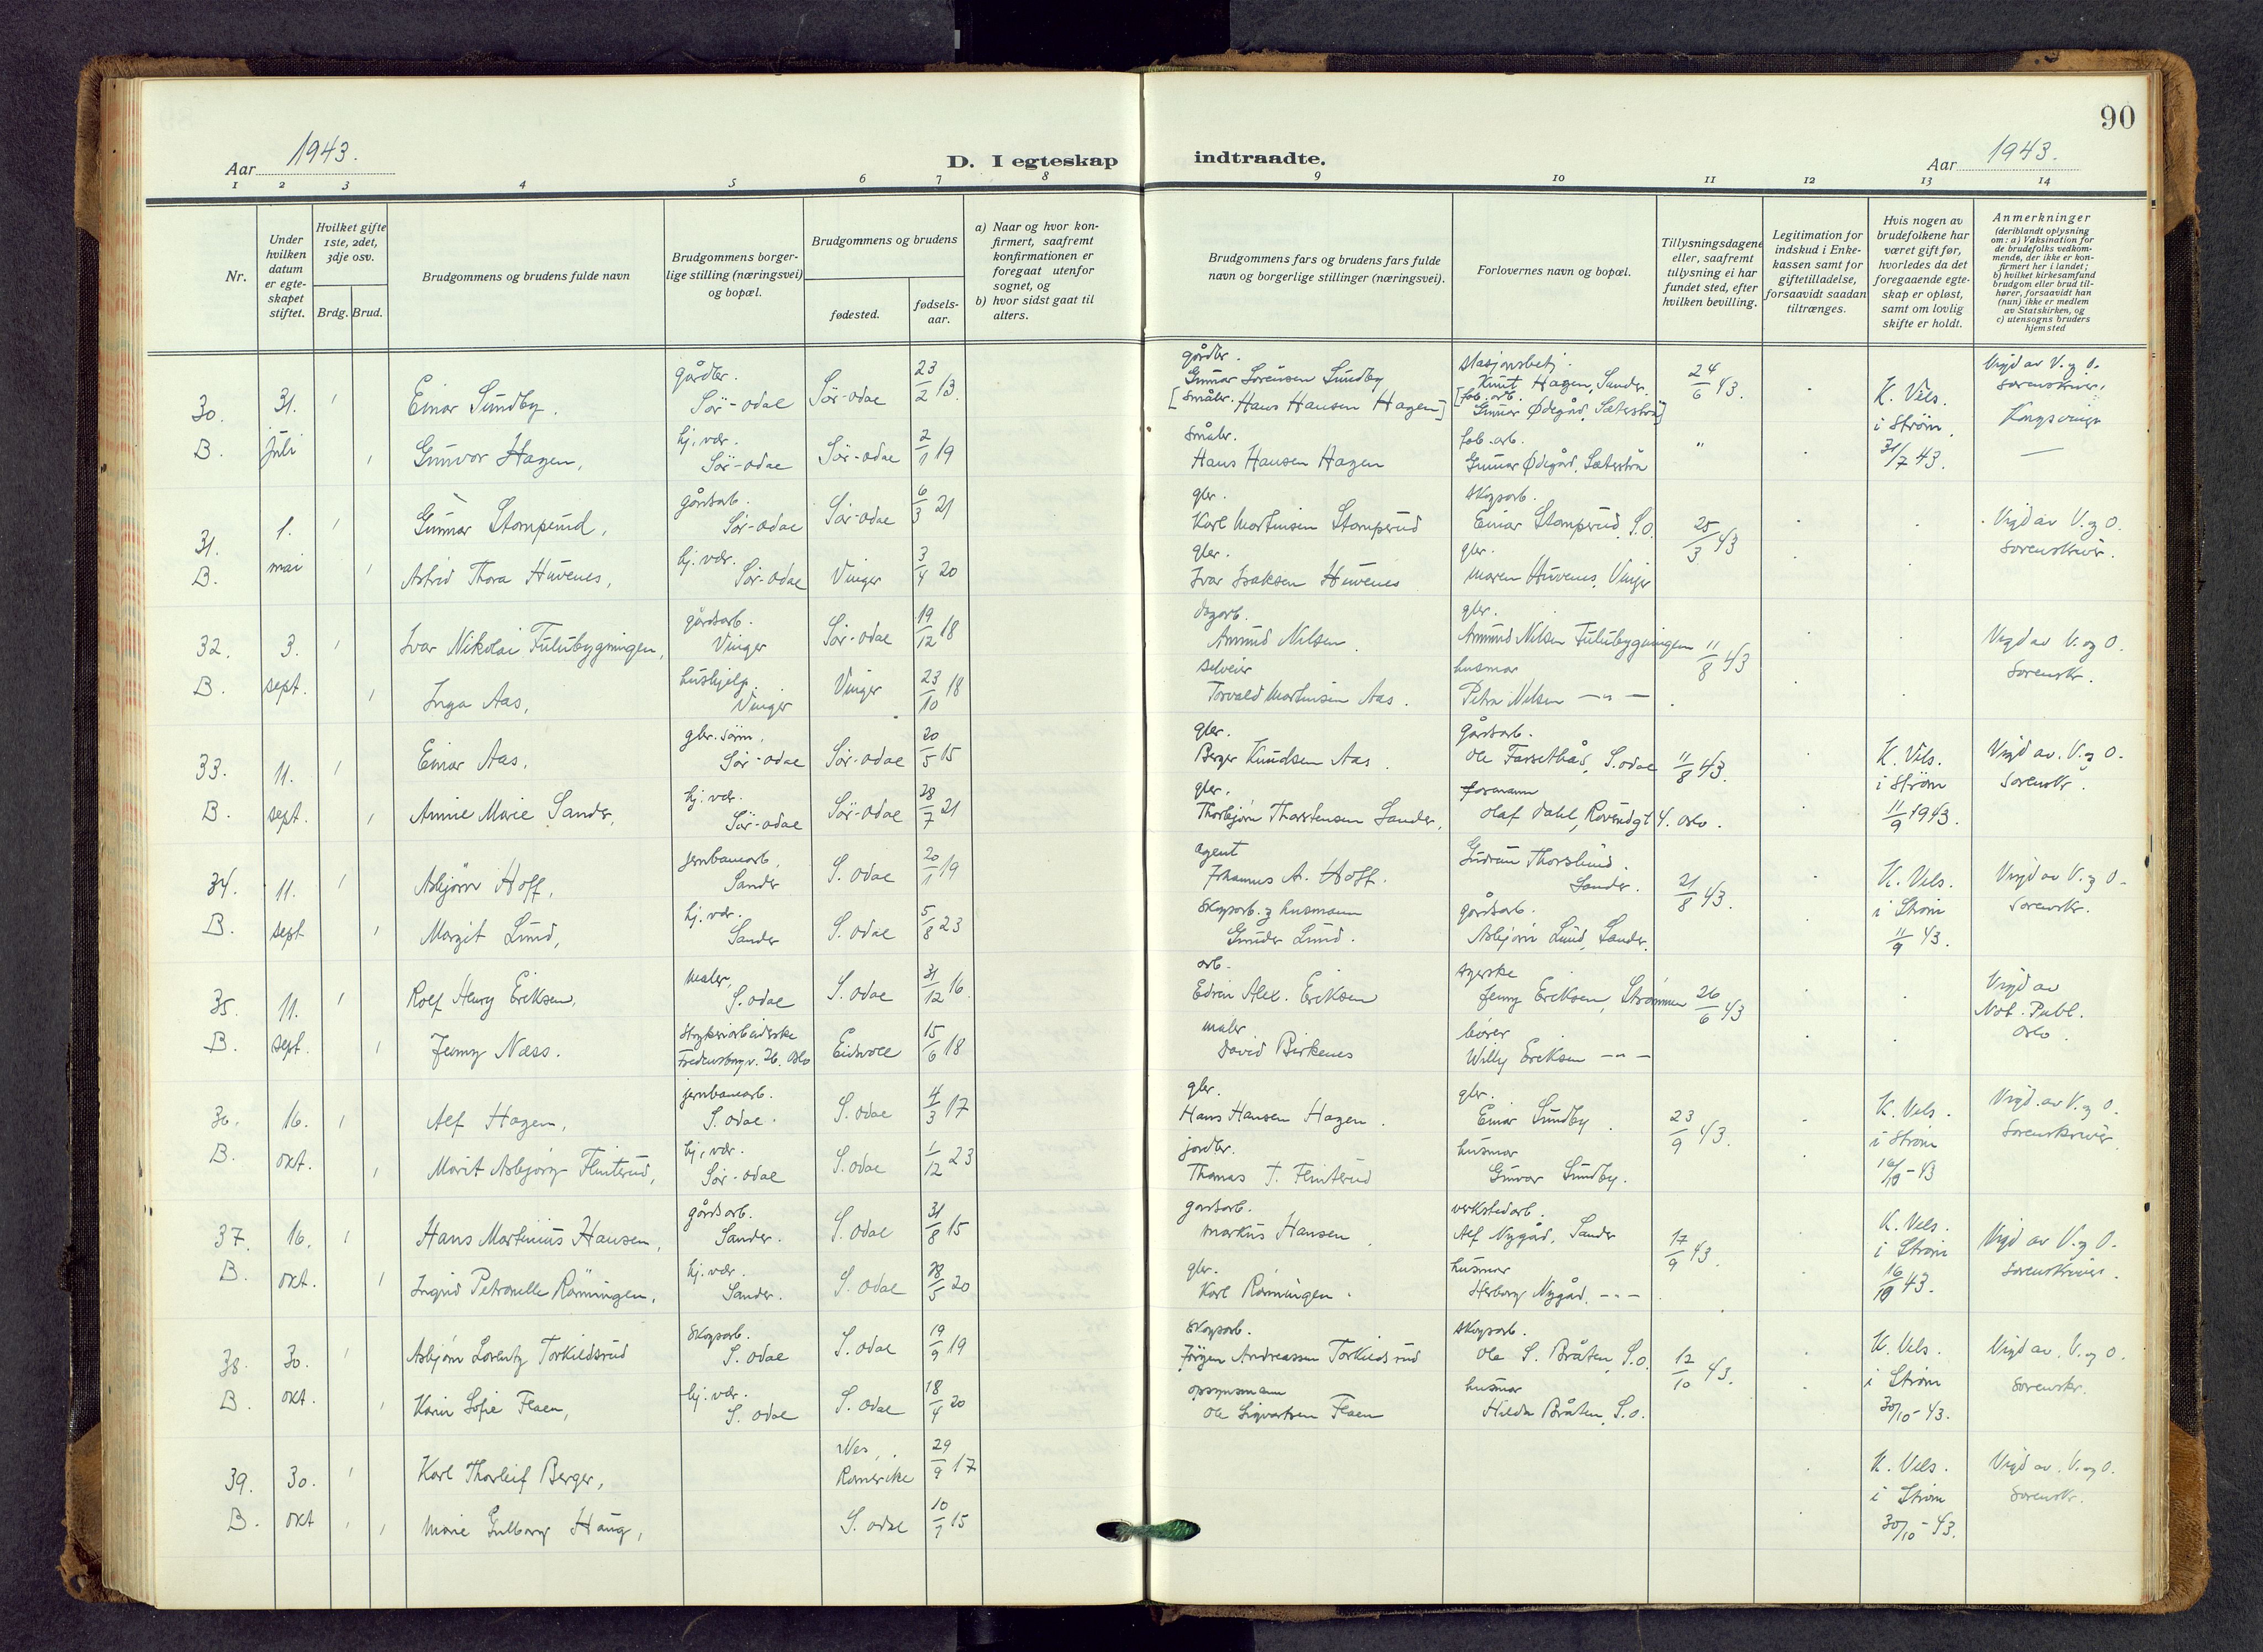 90
Aar 1943.
D. I egteskap indtraadte.
Aar 1943.
1 2 3 4 5 6 7 8 9 10 11 12 13 14
Nr.
Under hvilken datum er egteskapet stiftet.
Hvilket gifte 1ste, 2det, 3dje osv.
Brdg. Brud.
Brudgommens og brudens fulde navn
Brudgommens borgerlige stilling (næringsvei) og bopæl.
Brudgommens og brudens
fødested.
fødselsaar.
a) Naar og hvor konfirmert, saafremt konfirmationen er foregaat utenfor sognet, og
b) hvor sidst gaat til alters.
Brudgommens fars og brudens fars fulde navn og borgerlige stillinger (næringsvei).
Forlovernes navn og bopæl.
Tillysningsdagene eller, saafremt tillysning ei har fundet sted, efter hvilken bevilling.
Legitimation for indskud i Enkekassen samt for giftetilladelse, forsaavidt saadan tiltrænges.
Hvis nogen av brudefolkene har været gift før, hvorledes da det foregaaende egteskap er opløst, samt om lovlig skifte er holdt.
Anmerkninger (deriblandt oplysning om: a) Vaksination for de brudefolks vedkommende, der ikke er konfirmert her i landet; b) hvilket kirkesamfund brudgom eller brud tilhører, forsaavidt han (hun) ikke er medlem av Statskirken, og c) utensogns bruders hjemsted
30. 31. 1 Einar Sundby. gårdbr. Sör-odal Sör-odal 23/2 13. gårdbr. Gunnar Sorensen Sundby [småbr. Hans Hansen Hagen] stasjonsbetj. Knut Hagen, Sander. [fab.arb. Gunnar Ödegård, Sæterstrå] 24/6 43. K. Vels. i Ström. 31/7 43. Vigd av V. og O. Sorenskriver. Kongsvinger
B. juli 1 Gunvor Hagen, hj. vær. Sör-odal Sör-odal 2/1 19 småbr. Hans Hansen Hagen fab.arb. Gunnar Ödegård, Sæterstrå " —
31. 1. 1 Gunnar Stomperud, gårdsarb. Sör-odal Sör-odal 6/3 21 gbr. Karl Martinsen Stomperud skogsarb. Einar Stomperud, S.O. 25/3 43 Vigd av V. og O. Sorenskriver.
B. mai 1 Astrid Thora Huvenes, hj. vær. Sör-odal Vinger 3/4 20 gbr. Ivar Isaksen Huvenes gbr. Maren Huvenes, Vinger
32. 3. 1 Ivar Nikolai Fulubygningen, gårdsarb. Vinger Sör-odal 19/12 18 dagarb. Amund Nilsen. gbr. Amund Nilsen Fulubygningen 11/8 43 Vigd av V. og O. Sorenskr.
B. sept. 1 Inga Aas, hushjelp. Vinger Vinger 23/10 18 selveier Torvald Martinsen Aas. husmor Petra Nilsen —"—
33. 11. 1 Einar Aas, gbr. sönn, Sör-odal Sör-odal 20/5 15 gbr. Berger Knudsen Aas. gårdsarb. Ole Farsethås, S.odal 11/8 43. K. Vels. i Ström 11/9 1943. Vigd av. V. og O. Sorenskr.
B. sept. 1 Annie Marie Sander, hj. vær. Sör-odal Sör-odal 28/7 21 gbr. Thorbjörn Thorstensen Sander, formann Olaf Dahl, 4. Oslo.
34. 11. 1 Asbjörn Hoff, jernbanearb. Sander S. odal 20/1 19 agent Johannes A. Hoff. Gudrun Thorslund. Sander. 21/8 43. K. Vels. i Ström 11/9 43. Vigd av V. og O. Sorenskr.
B. sept 1 Margit Lund, hj. vær. Sander S. odal 5/8 23 skogsarb. og husmann Gunder Lund. gårdsarb. Asbjörn Lund, Sander.
35. 11. 1 Rolf Henry Eriksen, maler, S. odal S. odal 31/12 16. arb. Edvin Alex. Eriksen syerske Jenny Eriksen, Strömmen 26/6 43 Vigd av Not. Publ. Oslo.
B. sept. 1 Jenny Næss. strykeriarbeiderske Fredensborgv. 26. Oslo Eidsvoll 15/6 18 maler David Birkenes Willy Eriksen —"—
36. 16. 1 Alf Hagen, jernbanearb. S. odal. S. odal 4/3 17 gbr. Hans Hansen Hagen. gbr. Einar Sundby. 23/9 43. K. Vels. i Ström 16/10-43 Vigd. av V. og O. Sorenskriver.
B. okt. 1 Marit Asbjörg Flinterud, hj. vær. Sör-odal S. odal 1/12 23 jordbr. Thomas T. Flinterud husmor Gunvor Sundby.
37. 16. 1 Hans Martinius Hansen, gårdsarb. Sander. S. odal 31/8 15 gardsarb. Markus Hansen verkstedarb. Alf Nygård, Sander 17/9 43. K. Vels. i Ström 16/10 43. Vigd av V. og O. Sorenskriver.
B. okt. 1 Ingrid Petronelle Rönningen, hj. vær. Sander. S. odal 28/5 20 gbr. Karl Rönningen. husmor Herborg Nygård, —"—
38. 30. 1 Asbjörn Lorentz Torkildsrud skogsarb. S. odal S. odal 19/9 19 skogsarb. Jörgen Andreassen Torkildsrud skogsarb. Ole S. Bråten, S.o. 12/10 43. K. Vels. i Ström 30/10-43. Vigd av. V. og O. Sorenskr.
B. okt. 1 Karin Sofie Flaen, hj. vær. S. odal S. odal 18/4 20 opsynsmann Ole Sigvartsen Flaen husmor Hilda Bråten, S.o.
39. 30. 1 Karl Thorleif Berger, Nes, Romerike 29/9 17 K. Vels. i Ström 30/10-43. Vigd av. V. og O. Sorenskr.
B. okt 1 1 Marie Gulborg Haug, S. odal 10/7 15